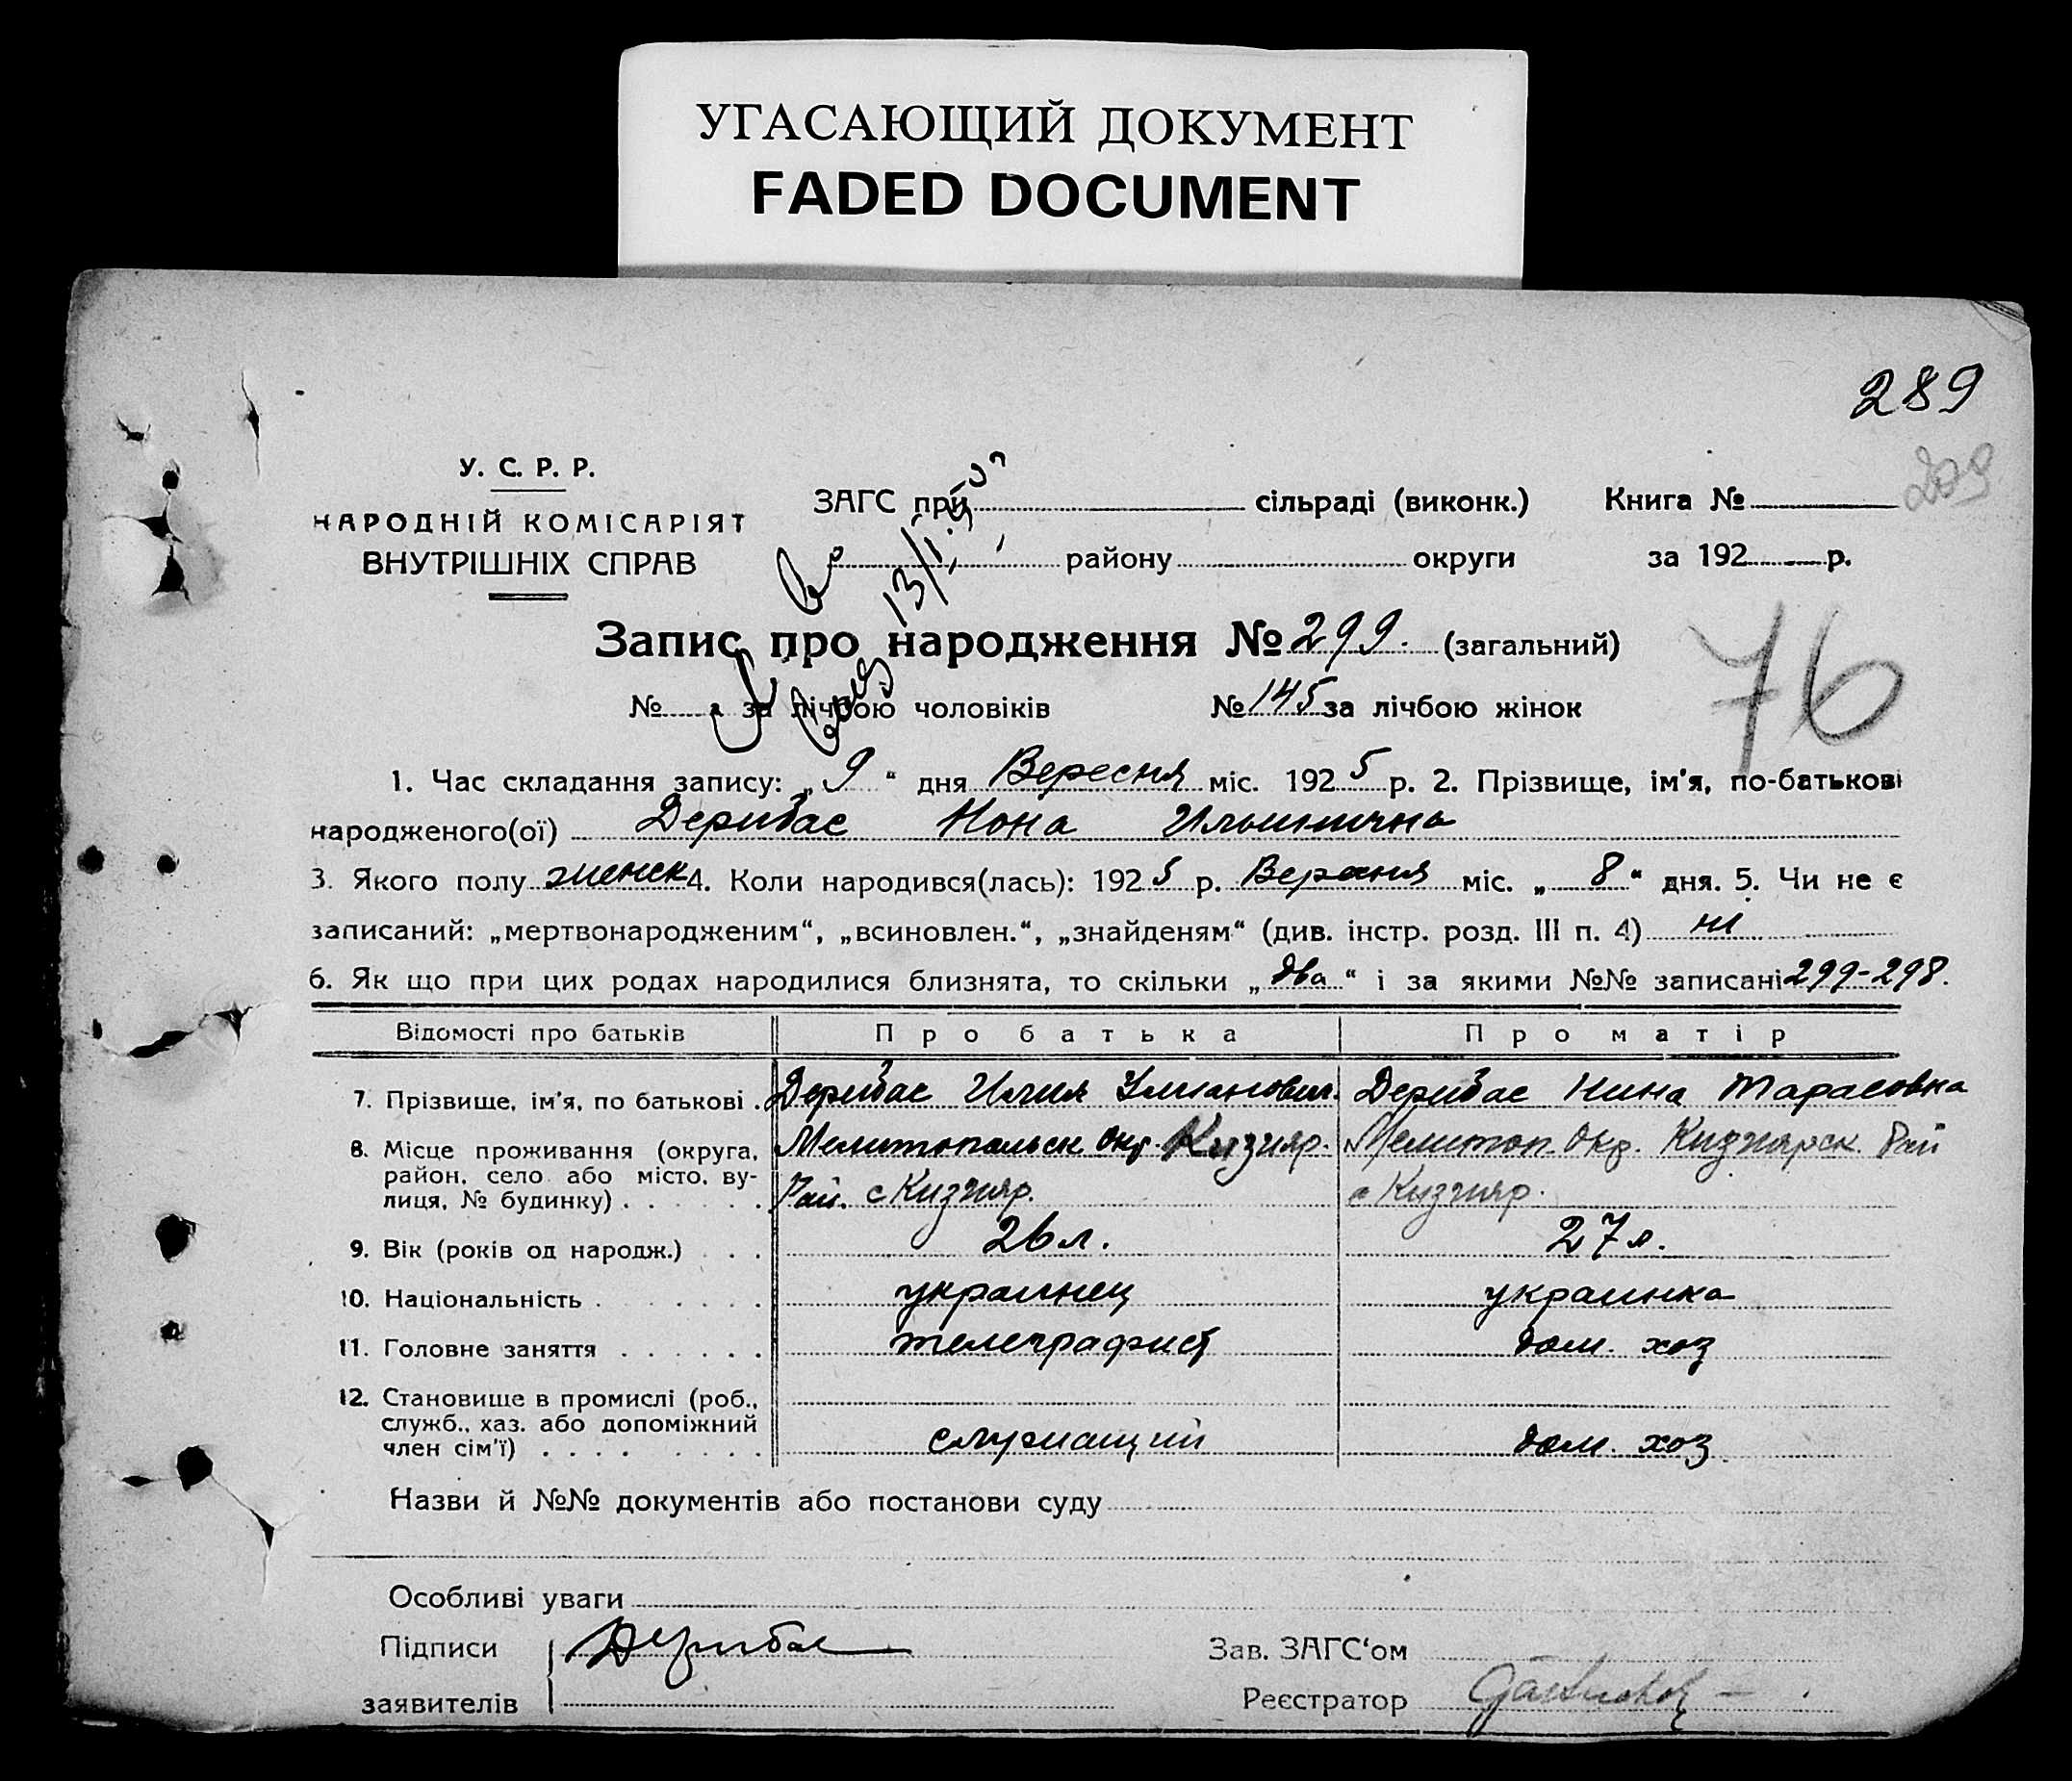 УГАСАЮЩИЙ ДОКУМЕНТ
FADED DOCUMENT
289
У. С. Р. Р.
НАРОДНІЙ КОМІСАРІЯТ
ВНУТРІШНІХ СПРАВ
ЗАГС при сільраді (виконк.) Книга №
району округи за 192 р.
Запис про народження № 299. (загальний)
76
№ за лічбою чоловіків № 145 за лічбою жінок
1. Час складання запису: „ 9 “ дня Вересня міс. 192 5 р. 2. Прізвище, ім'я, по-батькові
народженого(ої) Дерибас Нона Ильинична
3. Якого полу женск 4. Коли народився(лась): 192 5 р. Вересня міс. „ 8 “ дня. 5. Чи не є
записаний: „мертвонародженим“, „всиновлен.“, „знайденям“ (див. інстр. розд. III п. 4) ні
6. Як що при цих родах народилися близнята, то скільки „ два “ і за якими №№ записані 299-298.
Відомості про батьків Про батька Про матір
7. Прізвище, ім'я, по батькові . Дерибас Илия Дерибас Нина Тарасовна
8. Місце проживання (округа, Мелитопольск окр. Кизияр. Мелитоп. окр. Кизиярск. Рай
район, село або місто, ву-
лиця, № будинку) . . . . . . Рай. с Кизияр. с Кизияр.
9. Вік (років од народж.) . . . 26 л. 27 л.
10. Національність . . . . . . . украинец украинка
11. Головне заняття . . . . . . телеграфист дом. хоз
12. Становище в промислі (роб.,
служб., хаз. або допоміжний
член сім'ї) . . . . . . . . служащий дом. хоз.
Назви й №№ документів або постанови суду
Особливі уваги
Підписи Дерибас Зав. ЗАГС‘ом
заявителів Реєстратор